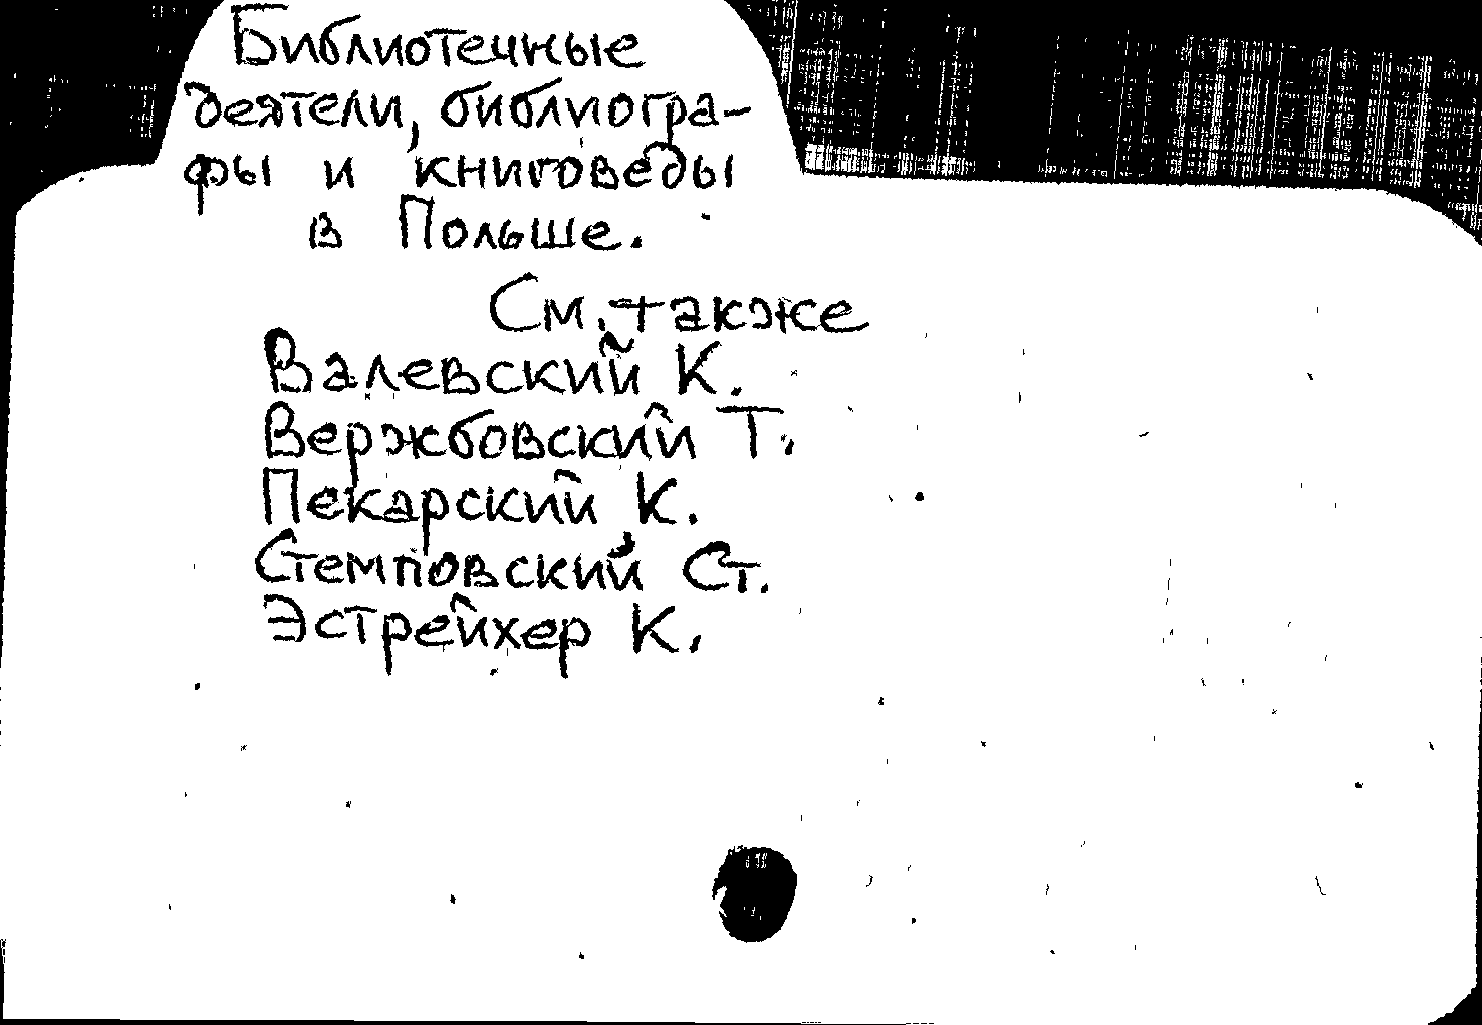 Библиотечные
деятели, библиогра-
фы и книговеды
в Польше.
См. также
Валевский К.
Вержбовский Т.
Пекарский К.
Стемповский Ст.
Эстрейхер К.